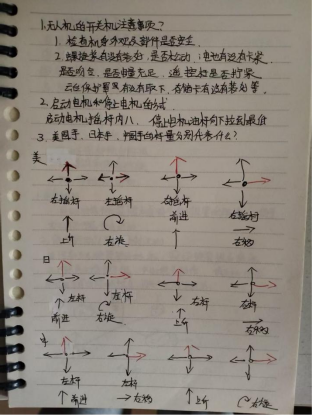 1.无人机的开关机注意事项?
1. 检查机身外观及部件是否安全
2. 螺旋桨有没有松动,电池有没有卡紧
是否电量充足,遥控器是否拧紧
云台保护罩有没有取下,存储卡有没有装好等
2. 启动电机和停止电机的方式
启动电机摇杆内八,停止电机油杆向下拉到最低
3. 美国手,日本手,中国手的杆量分别代表什么?
美
左摇杆 左摇杆 右摇杆 右摇杆
上升 右旋 前进 右移
日
左杆 左杆 右杆 右杆
前进 右旋 上升 右移
中
左杆 左杆 右杆 右杆
前进 右移 上升 右旋